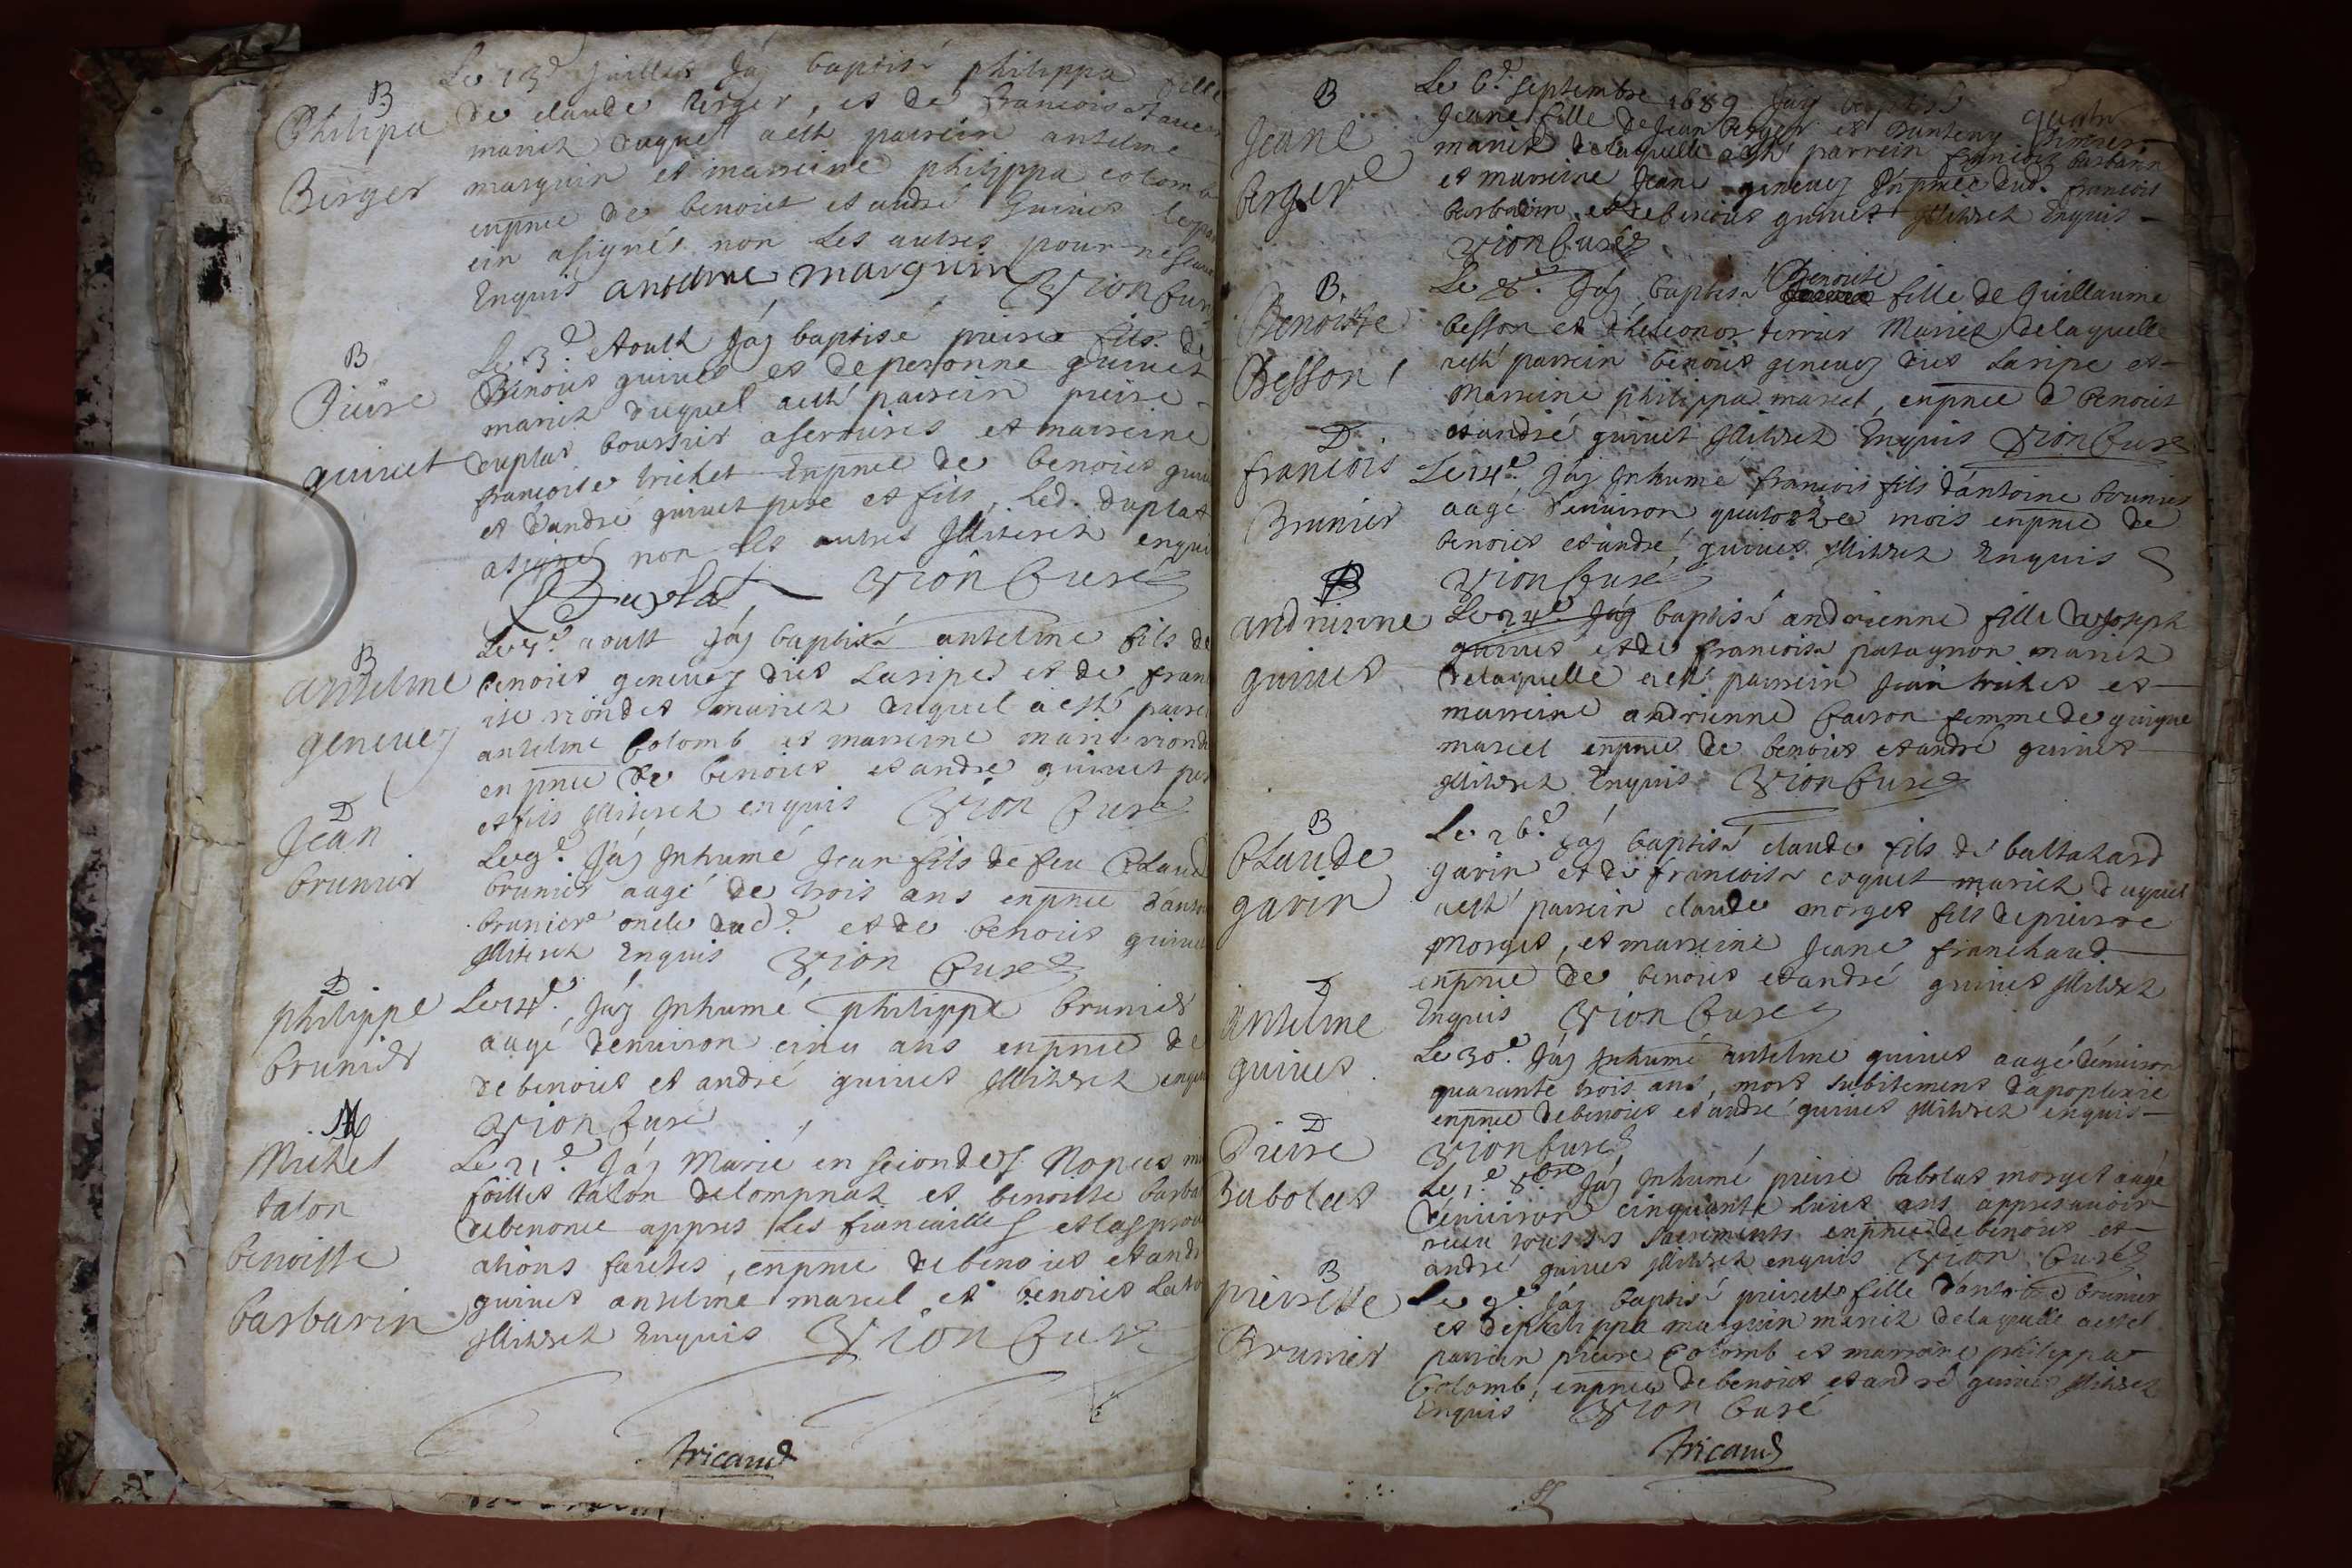 B
Philipa
Berger
Le 13e Juillet Jáy baptisé philippa fille
de claude berger, et de francoise
mariez duquel a esté parrein antelme
marguin et marreine philippa colomb
enpnce de benoict et andré Guinet le par
ein asigné non les autres pour ne scavoir
Enquis antelme marguin Vion Curé
B
Pierre
guinet
Le 3e. Aoust Jáy baptisé pierre fils de
Benoict guinet et de peronne guinet
mariez duquel a esté parrein pierre
duplat et marreine
francoise trichet Enpnce de benoict guin
et d'andré guinet pere et fils, led. duplat
asigné non les autres Illiterez enqui
Duplat Vion Curé
B
Antelme
geneuey
Le 7e aoust Jáy baptisé antelme fils de
benoict geneuey dict Laripe et de fran
ise riondet mariez duquel a esté parrei
antelme Colomb et marreine marie riond
en pnce de benoict et andré guinet per
et fils Illiterez enquis Vion Curé
D
Jean
brunier
Le 9e. Jáy Inhumé Jean fils de feu Claud
brunier aagé de trois ans enpnce d'anto
brunier oncle dud. et de benoict guinet
Illiterez Enquis Vion Curé
D
philippe
brunier
Le 14e. Jáy Inhumé philippe brunier
aagé denuiron cinq ans enpnce de
de benoict et andré guinet Illiterez enqui
Vion Curé
M
Michel
talon
benoiste
barbarin
Le 21e. Jáy Marié en secondes Nopces mi
talon delompnaz et benoiste barba
debenonce appres les fiancailles et les proc
ations faictes, enpnce de benoict et and
guinet antelme marcel et benoict
Illiterez Enquis Vion Curé
Tricaud
B
Jeane
berger
Le 6e. Septembre 1689 Jáy baptisé
Jeane fille de Jean berger et
mariez de laquelle a esté parrein francois barbarin
et marreine Jeane geneuey Enpnce dud. francois
barbarin et de benoict guinet Illiterez Enquis
Vion Curé
B
Benoiste
Besson
Le 8e. Jáy baptisé Benoiste fille de Guillaume
besson et d'heleonor ferrier Mariez delaquelle
aesté parrein benoict geneuey dict Laripe et
Marreine philippa marcel, enpnce de Benoict
et andré guinet Illiterez Enquis Vion Curé
D
francois
Brunier
Le 14e. Jáy Inhumé francois fils d'antoine brunier
aagé d'enuiron quatorze mois enpnce de
benoict et andré guinet Illiterez Enquis
Vion Curé
B
andrienne
guinet
Le 24e. Jáy baptisé andrienne fille de Joseph
guinet et de francoise patagnon mariez
delaquelle aesté parrein Jean trichet et
marreine andrienne Caron femme de guigue
marcel enpnce de benoict et andré guinet
Illiterez Enquis Vion Curé
B
Claude
gavin
Le 26e Jáy baptisé claude fils de baltazard
gavin et de francoise coquet mariez duquel
aesté parrein claude morget fils de pierre
Morget, et marreine Jeane franchaud
enpnce de benoict et andré guinet Illiterez
Enquis Vion Curé
D
Antelme
guinet
Le 30e. Jáy Inhumé antelme guinet aagé d'enuiron
quarante trois ans, mort subitement d'apoplexie
enpnce de benoict et andré guinet Illiterez enquis
Vion Curé
D
Pierre
Babolat
Le 1e. 8bre Jáy Inhumé pierre babolat morget aagé
d'enuiron cinquante huict ans appres auoir
receu tous ses sacrements enpnce de benoict et
andré guinet Illiterez enquis Vion Curé
B
pierrette
Brunier
Le 9e. Jáy baptisé pierrette fille d'antoine brunier
et de philippa marguin mariez delaquelle aesté
parrein pierre Colomb et marreine philippa
Colomb, enpnce de benoict et andré guinet Illiterez
Enquis Vion Curé
Tricaud